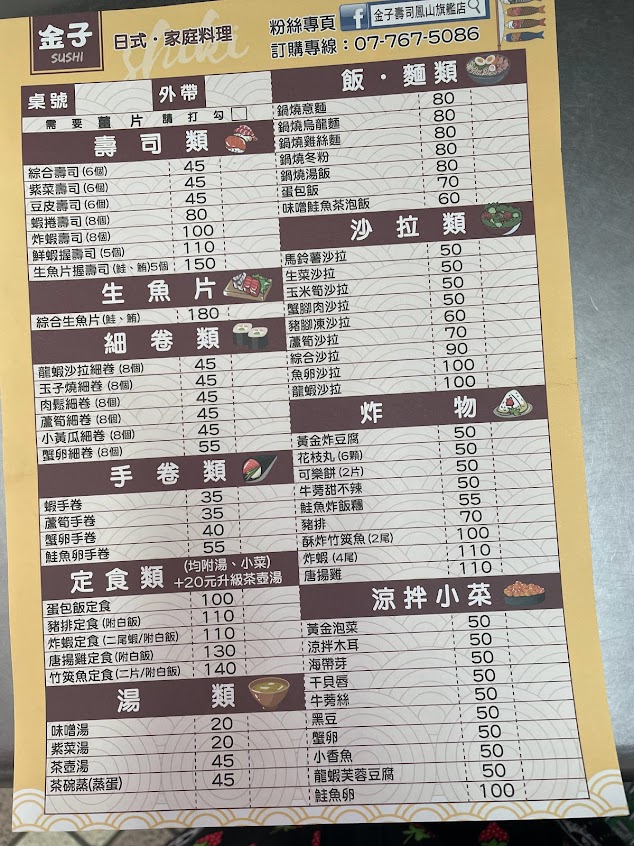 金子
SUSHI
日式・家庭料理
粉絲專頁
金子壽司鳳山旗艦店
訂購專線：07-767-5086
桌號
外帶
需要薑片請打勾
壽司類
綜合壽司(6個) 45
紫菜壽司(6個) 45
豆皮壽司(6個) 45
蝦捲壽司(8個) 80
炸蝦壽司(8個) 100
鮮蝦握壽司(5個) 110
生魚片握壽司(鮭、鮪)5個 150
生魚片
綜合生魚片(鮭、鮪) 180
細卷類
龍蝦沙拉細卷(8個) 45
玉子燒細卷(8個) 45
肉鬆細卷(8個) 45
蘆筍細卷(8個) 45
小黃瓜細卷(8個) 45
蟹卵細卷(8個) 55
手卷類
蝦手卷 35
蘆筍手卷 35
蟹卵手卷 40
鮭魚卵手卷 55
定食類
(均附湯、小菜)
+20元升級茶壺湯
蛋包飯定食 100
豬排定食(附白飯) 110
炸蝦定食(二尾蝦/附白飯) 110
唐揚雞定食(附白飯) 130
竹筴魚定食(二片/附白飯) 140
湯類
味噌湯 20
紫菜湯 20
茶壺湯 45
茶碗蒸(蒸蛋) 45
飯・麵類
鍋燒意麵 80
鍋燒烏龍麵 80
鍋燒雞絲麵 80
鍋燒冬粉 80
鍋燒湯飯 80
蛋包飯 70
味噌鮭魚茶泡飯 60
沙拉類
馬鈴薯沙拉 50
生菜沙拉 50
玉米筍沙拉 50
蟹腳肉沙拉 50
豬腳凍沙拉 60
蘆筍沙拉 70
綜合沙拉 90
魚卵沙拉 100
龍蝦沙拉 100
炸物
黃金炸豆腐 50
花枝丸(6顆) 50
可樂餅(2片) 50
牛蒡甜不辣 50
鮭魚炸飯糰 55
豬排 70
酥炸竹筴魚(2尾) 100
炸蝦(4尾) 110
唐揚雞 110
涼拌小菜
黃金泡菜 50
涼拌木耳 50
海帶芽 50
干貝唇 50
牛蒡絲 50
黑豆 50
蟹卵 50
小香魚 50
龍蝦芙蓉豆腐 50
鮭魚卵 100